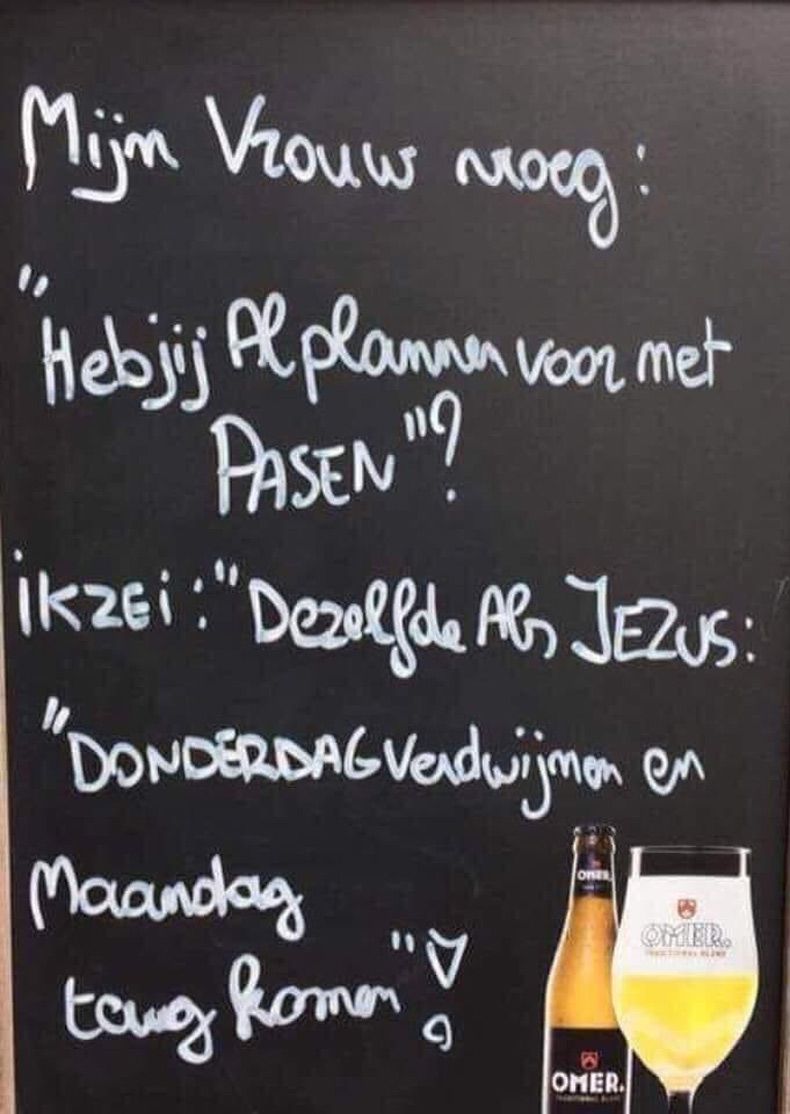 Mijn Vrouw vroeg:
"Heb jij Al plannen voor met
PASEN"?
ikzei: "Dezelfde Als JEZUS:
"DONDERDAG Verdwijnen en
Maandag
terug komen"!
OMER.
OMER.
TRADITIONAL BLOND
OMER.
TRADITIONAL BLOND